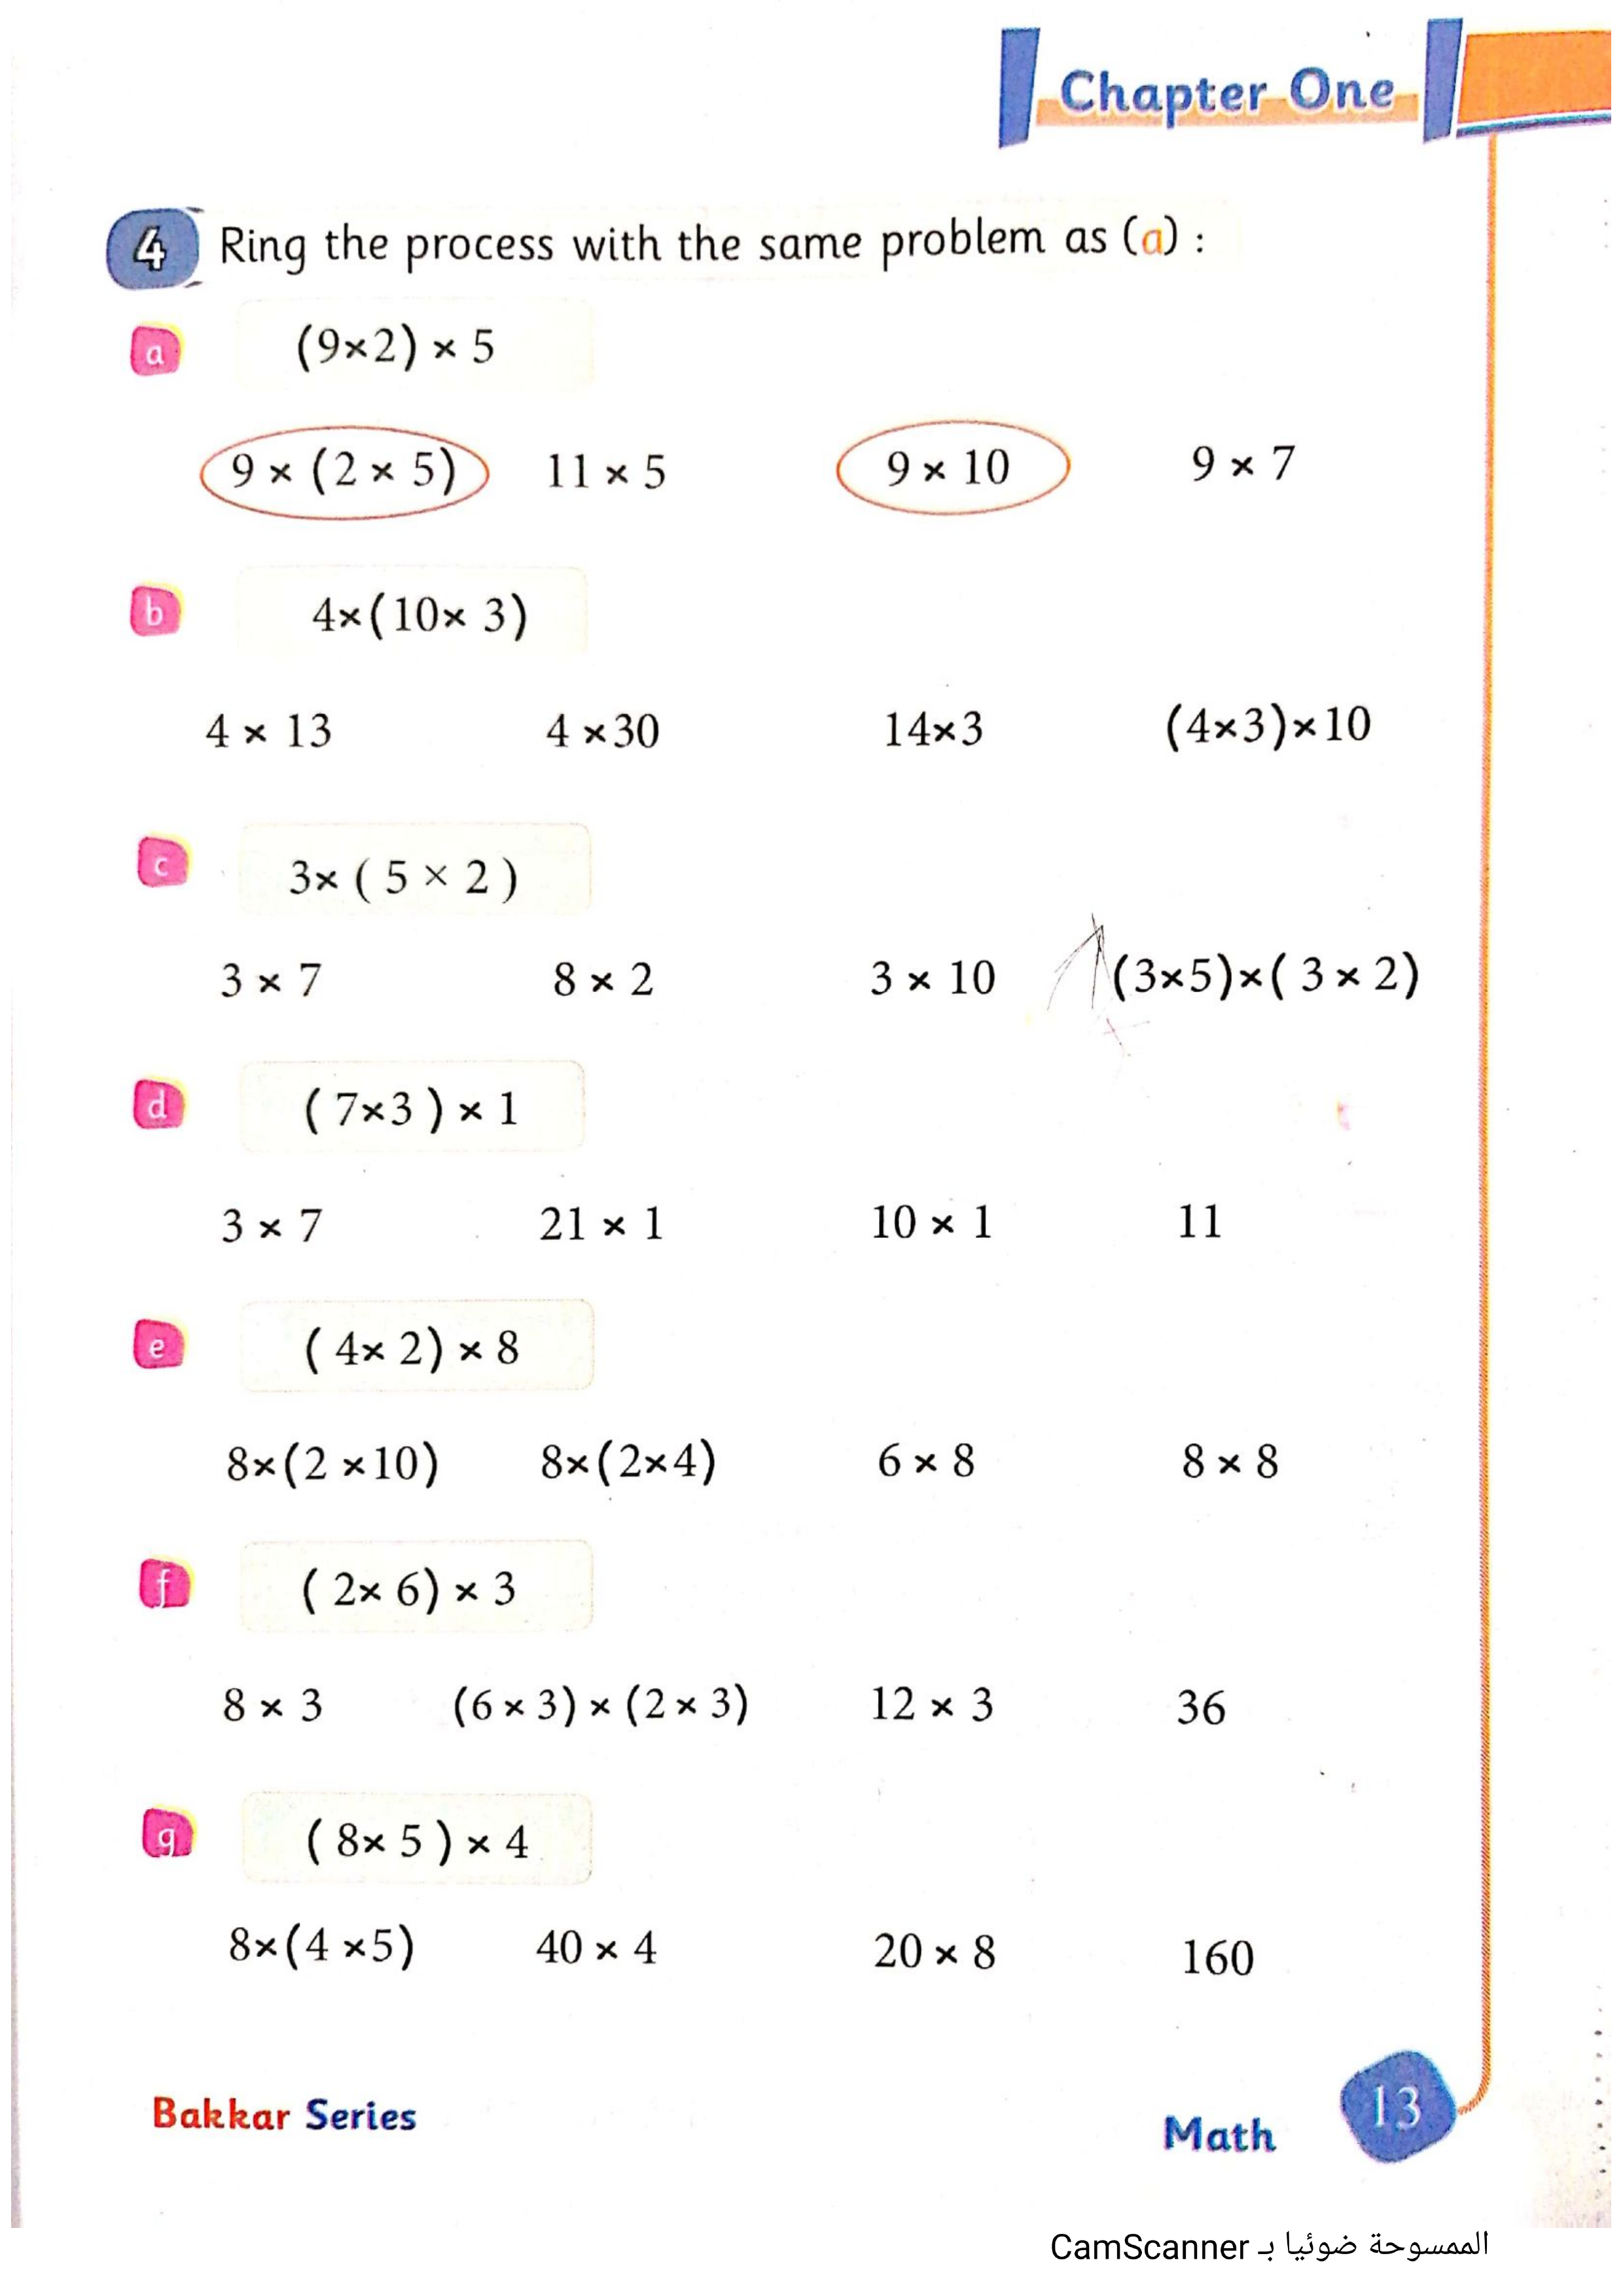 Chapter One
4 Ring the process with the same problem as (a) :
a (9×2) × 5
9 × (2 × 5) 11 × 5 9 × 10 9 × 7
b 4×(10× 3)
4 × 13 4 ×30 14×3 (4×3)×10
c 3× ( 5 × 2 )
3 × 7 8 × 2 3 × 10 (3×5)×( 3 × 2)
d ( 7×3 ) × 1
3 × 7 21 × 1 10 × 1 11
e ( 4× 2) × 8
8×(2 ×10) 8×(2×4) 6 × 8 8 × 8
f ( 2× 6) × 3
8 × 3 (6 × 3) × (2 × 3) 12 × 3 36
g ( 8× 5 ) × 4
8×(4 ×5) 40 × 4 20 × 8 160
Bakkar Series Math 13
الممسوحة ضوئيا بـ CamScanner